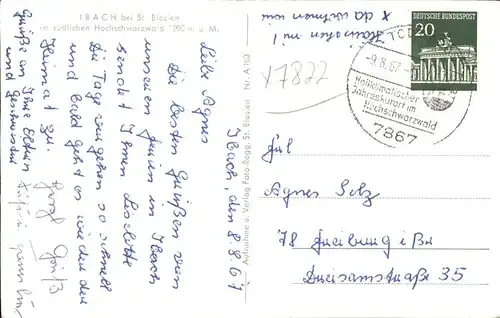 IBACH bei St. Blasien
im südlichen Hochschwarzwald 1000 m ü. M.
Ibach, den 8.8.67
Liebe Agnes
Die besten Grüßen von
unseren Ferien in Ibach
sendet Ihnen Liselotte
Die Tage vergehen so schnell
und bald geht es wieder der
Heimat zu.
Grüße an Ihre Eltern
und Geschwister
Aufnahme u. Verlag Foto-Rogg, St. Blasien Nr. A 103
Y7822
DEUTSCHE BUNDESPOST
20
-9.8.67-
Heilklimatischer
Jahreskurort im
Hochschwarzwald
7867
Frl
Agnes Selz
78 Freiburg i/Br
Dreisamstraße 35